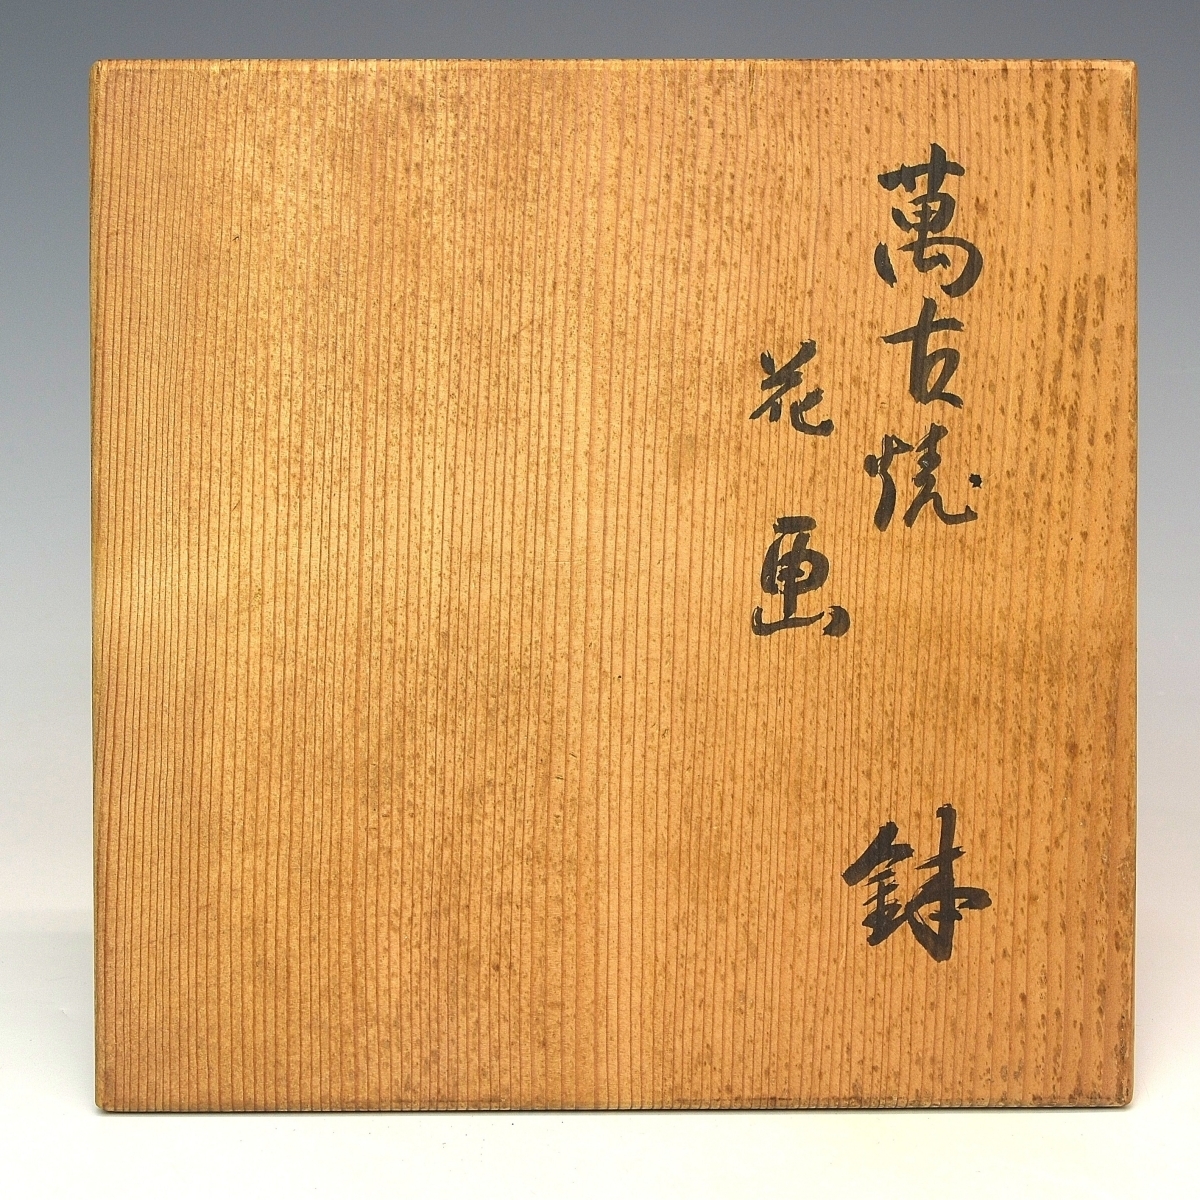 萬古焼
花画
鉢